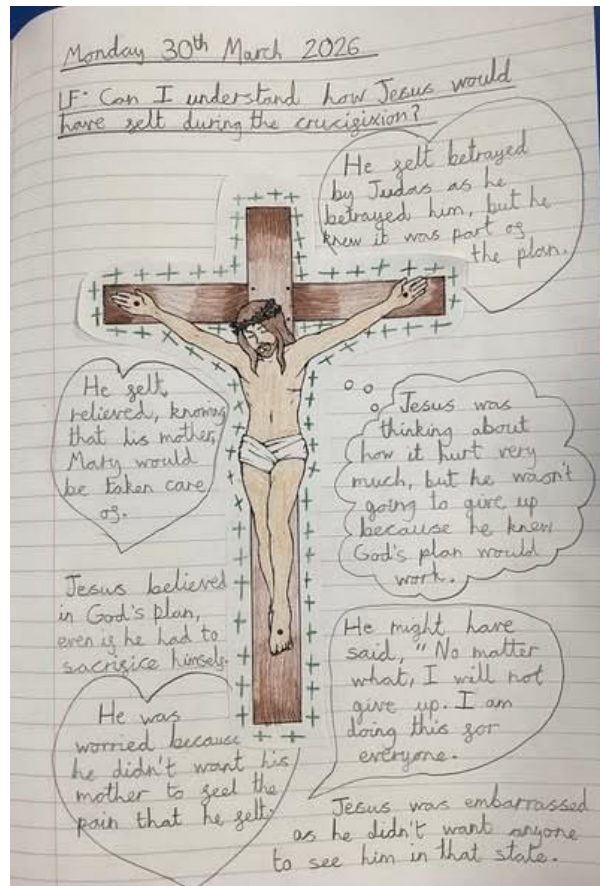 Monday 30th March 2026
LF: Can I understand how Jesus would
have felt during the crucifixion?
He felt betrayed
by Judas as he
betrayed him, but he
knew it was part of
the plan.
He felt
relieved, knowing
that his mother,
Mary would
be taken care
of.
Jesus was
thinking about
how it hurt very
much, but he wasn't
going to give up
because he knew
God's plan would
work.
Jesus believed
in God's plan,
even if he had to
sacrifice himself.
He might have
said, "No matter
what, I will not
give up. I am
doing this for
everyone.
He was
worried because
he didn't want his
mother to feel the
pain that he felt.
Jesus was embarrassed
as he didn't want anyone
to see him in that state.